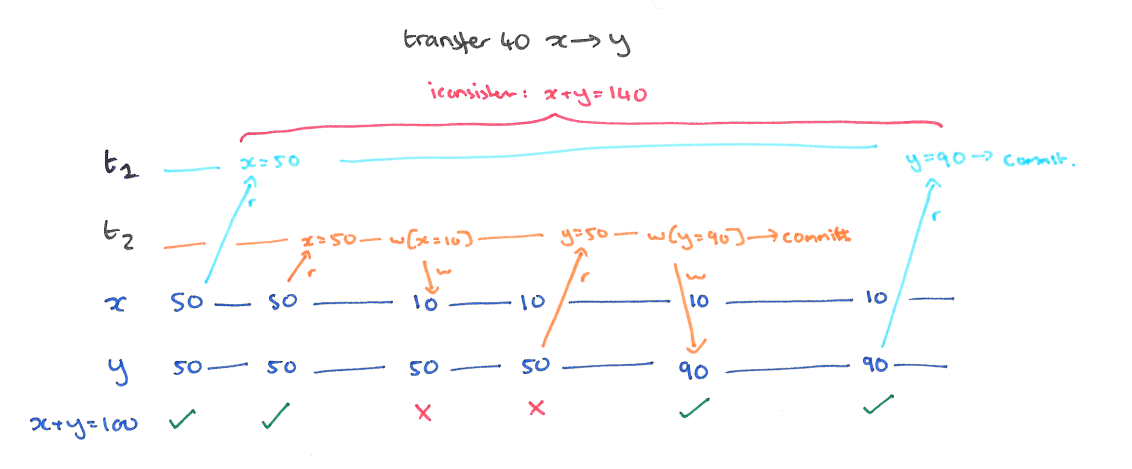 transfer 40 x→y
iconsisten: x+y=140
t1 x=50 y=90 → commit.
r r
t2 x=50 w[x=10] y=50 w[y=90] → committ.
r w r w
x 50 50 10 10 10 10
y 50 50 50 50 90 90
x+y=100 ✓ ✓ ✗ ✗ ✓ ✓